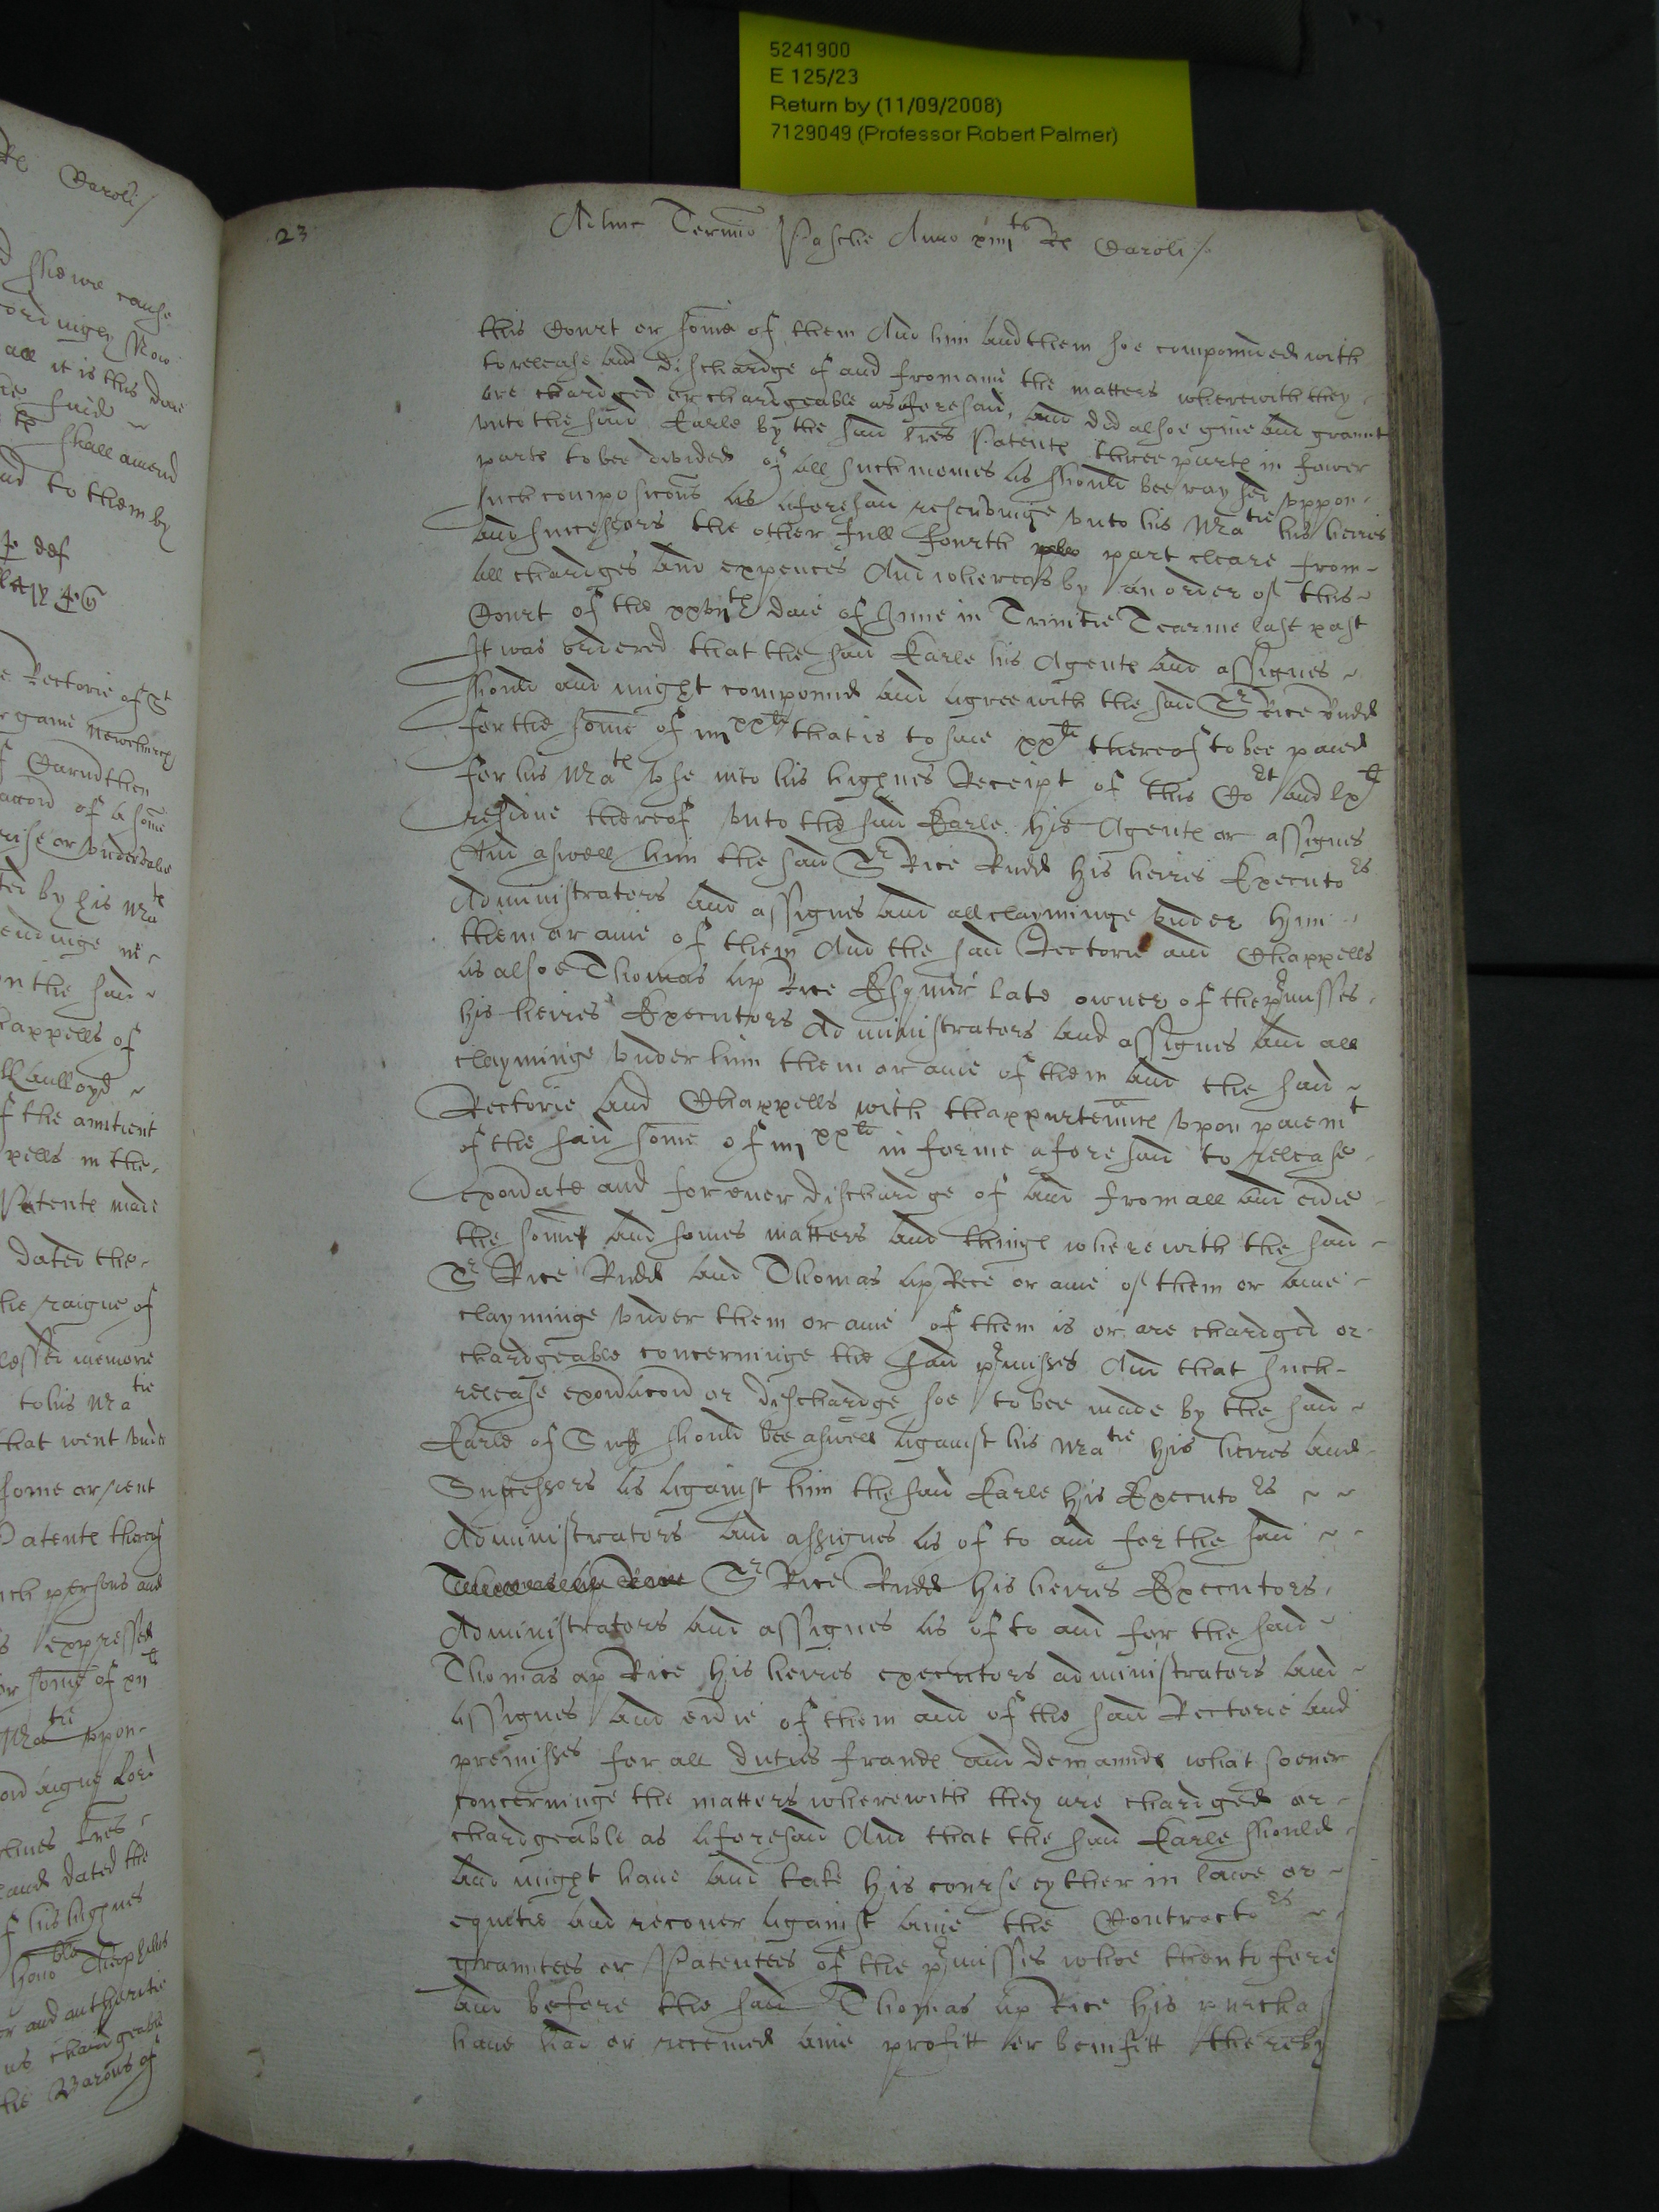 5241900
E 125/23
Return by (11/09/2008)
7129049 (Professor Robert Palmer)
23
Termino Pasche Anno xiiii to Re Caroli
this Court or some of them And him and them soe compounded with
to release and dischardge of and from anie the matters wherewith they
are chardged or chardgeable as aforesaid, and did alsoe giue and graunt
vnto the said Earle by the said lres Patente three parte in fower
parte to bee divided of all such monies as should bee raysed vppon
such composicons as aforesaid reservinge vnto his Matie his heires
and successors the other full fourth part cleare from
all chardges and expences And whereas by an order of this
Court of the xxvijth daie of June in Trinitie Tearme last past
It was ordered that the said Earle his Agente and assignes
should and might compound and agree with the said Sr Rice Rudd
for the some of iiijxxli that is to saie xxli thereof to bee paied
for his Mate vse into his highnes Receipt of this Cort and lxli
residue thereof vnto the said Earle his Agente or assignes
And aswell him the said Sr Rice Rudd his heires Executors
Administrators and assignes and all clayminge vnder him
them or anie of them And the said Rectorie and Chappells
as alsoe Thomas ap Rice Esquier late owner of the pmisses
his heires Executors Administrators and assignes and all
clayminge vnder him them or anie of them and the said
Rectorie and Chappells with thappurtennce vpon paiemt
of the said some of iiijxxli in forme aforesaid to release
exonerate and for euer dischardge of and from all and euie
the some and somes matters and thinge wherewith the said
Sr Rice Rudd and Thomas ap Rice or anie of them or anie
clayminge vnder them or anie of them is or are chardged or
chardgeable concerninge the said pmisses And that such
release exonacon or dischardge soe to bee made by the said
Earle of Suff should bee aswell against his Matie his heires and
Successors as against him the said Earle his Executors
Administrators and assignes as of to and for the said
Sr Rice Rudd his heires Executors
Administrators and assignes as of to and for the said
Thomas ap Rice his heires executors administrators and
assignes and euie of them and of the said Rectorie and
premisses for all duties fraude and demaunds what soeuer
concerninge the matters wherewith they are chardged or
chardgeable as aforesaid And that the said Earle should
and might haue and take his course eyther in lawe or
equitie and recouer against anie the Contractors
grauntees or Patentees of the pmisses whoe thentofore
and before the said Thomas ap Rice his purchas
haue had or receiued anie profitt or benifitt thereby